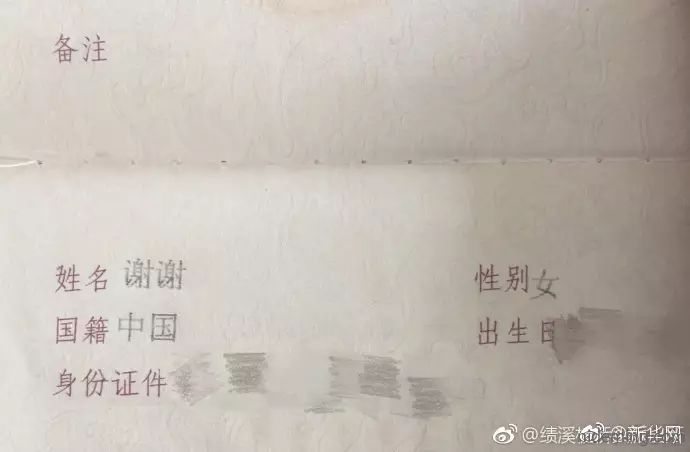 备注
姓名 谢谢 性别 女
国籍 中国 出生日
身份证件
@绩溪 @新华网